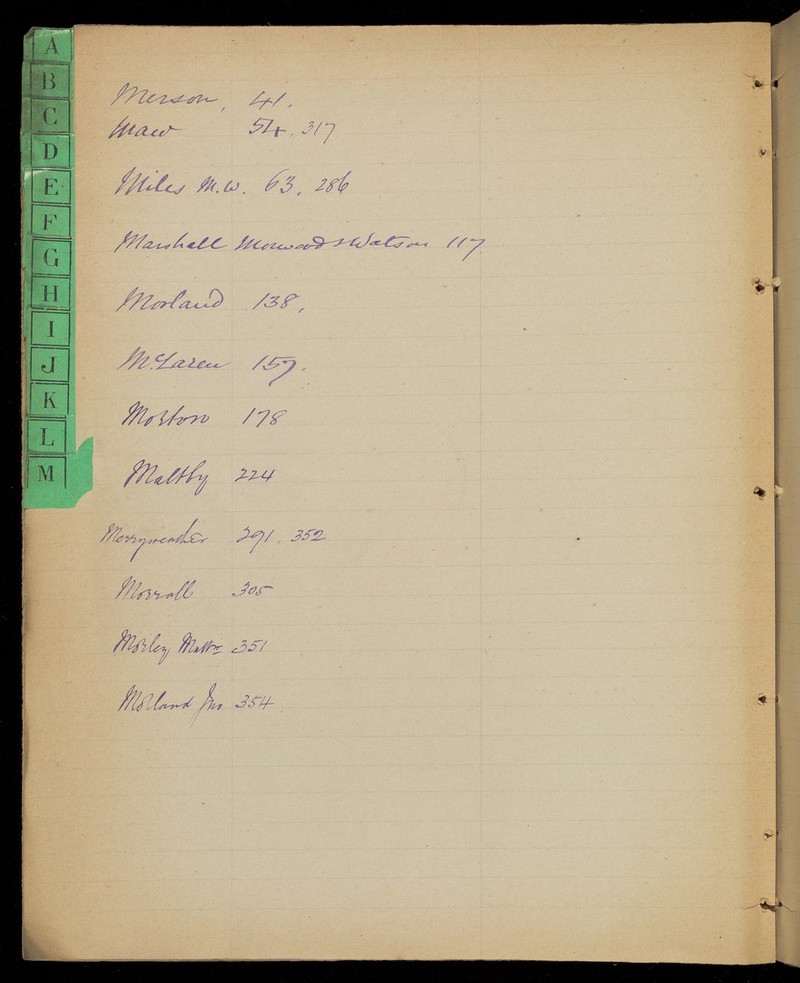 A
B
C
D
E
F
G
H
I
J
K
L
M
Merson, 41.
Maw 54. 317
Miles M.W. 63. 286
Marshall Morwood & Watson 117
Morland 138,
McLaren 157.
Morton 178
Maltby 224
Merryweather 291. 352
Morrall 305
Morley 351
Morland Jno 354